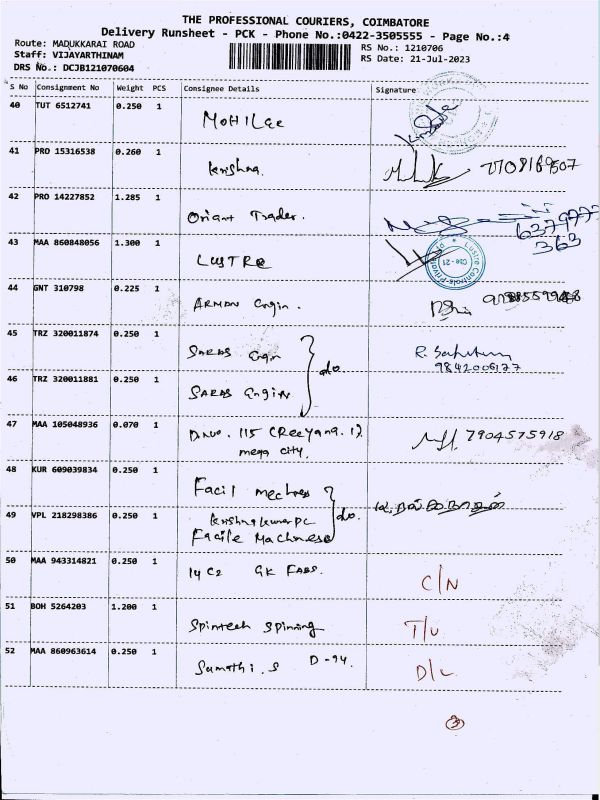 THE PROFESSIONAL COURIERS, COIMBATORE
Delivery Runsheet - PCK - Phone No.:0422-3505555 - Page No.:4
Route: MADUKKARAI ROAD
RS No.: 1210706
Staff: VIJAYARTHINAM
RS Date: 21-Jul-2023
DRS No.: DCJB121070604
S No Consignment No Weight PCS Consignee Details Signature
40 TUT 6512741 0.250 1 MOHILee
41 PRO 15316538 0.260 1 Krishna.
42 PRO 14227852 1.285 1 Oriant Trader.
637977
363
43 MAA 860848056 1.300 1 LUSTRe
Lustre Controls Private
Cbe - 21
44 GNT 310798 0.225 1 ARMAN Engin.
45 TRZ 320011874 0.250 1 SARAS Engin
do
46 TRZ 320011881 0.250 1 SARAS Engin
47 MAA 105048936 0.070 1 D.No. 115 7904575918
mega city.
48 KUR 609039834 0.250 1 Facil
do.
49 VPL 218298386 0.250 1 Krishnakumar PC
Facile
50 MAA 943314821 0.250 1 14 C2 GK FABS. C/N
51 BOH 5264203 1.200 1 Spintech Spinning T/U
52 MAA 860963614 0.250 1 Sumathi.S D-94. D/L
3